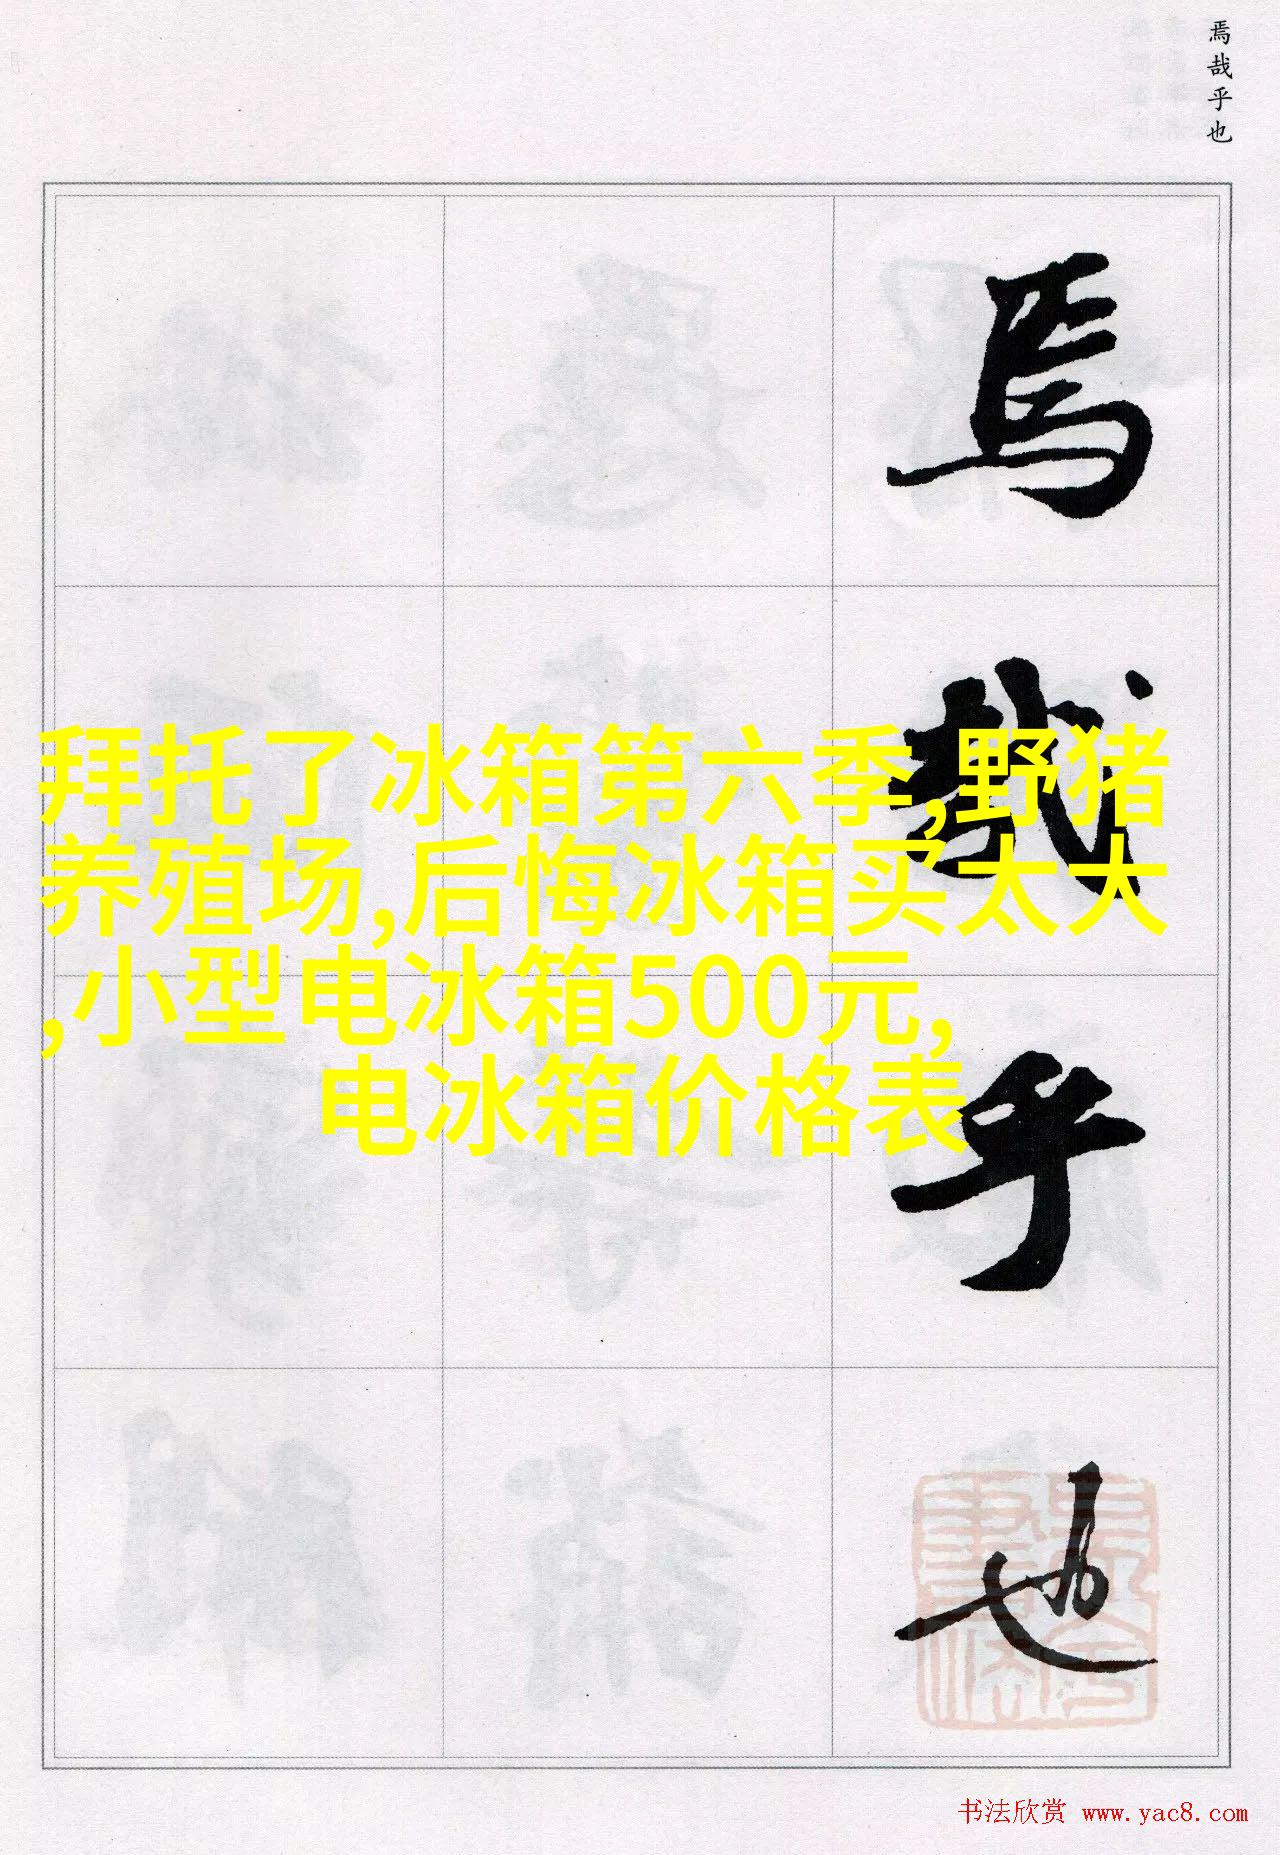 焉哉乎也
焉
哉
乎
也
拜托了冰箱第六季,野猪
养殖场,后悔冰箱买太大
,小型电冰箱500元,
电冰箱价格表
书法欣赏 www.yac8.com